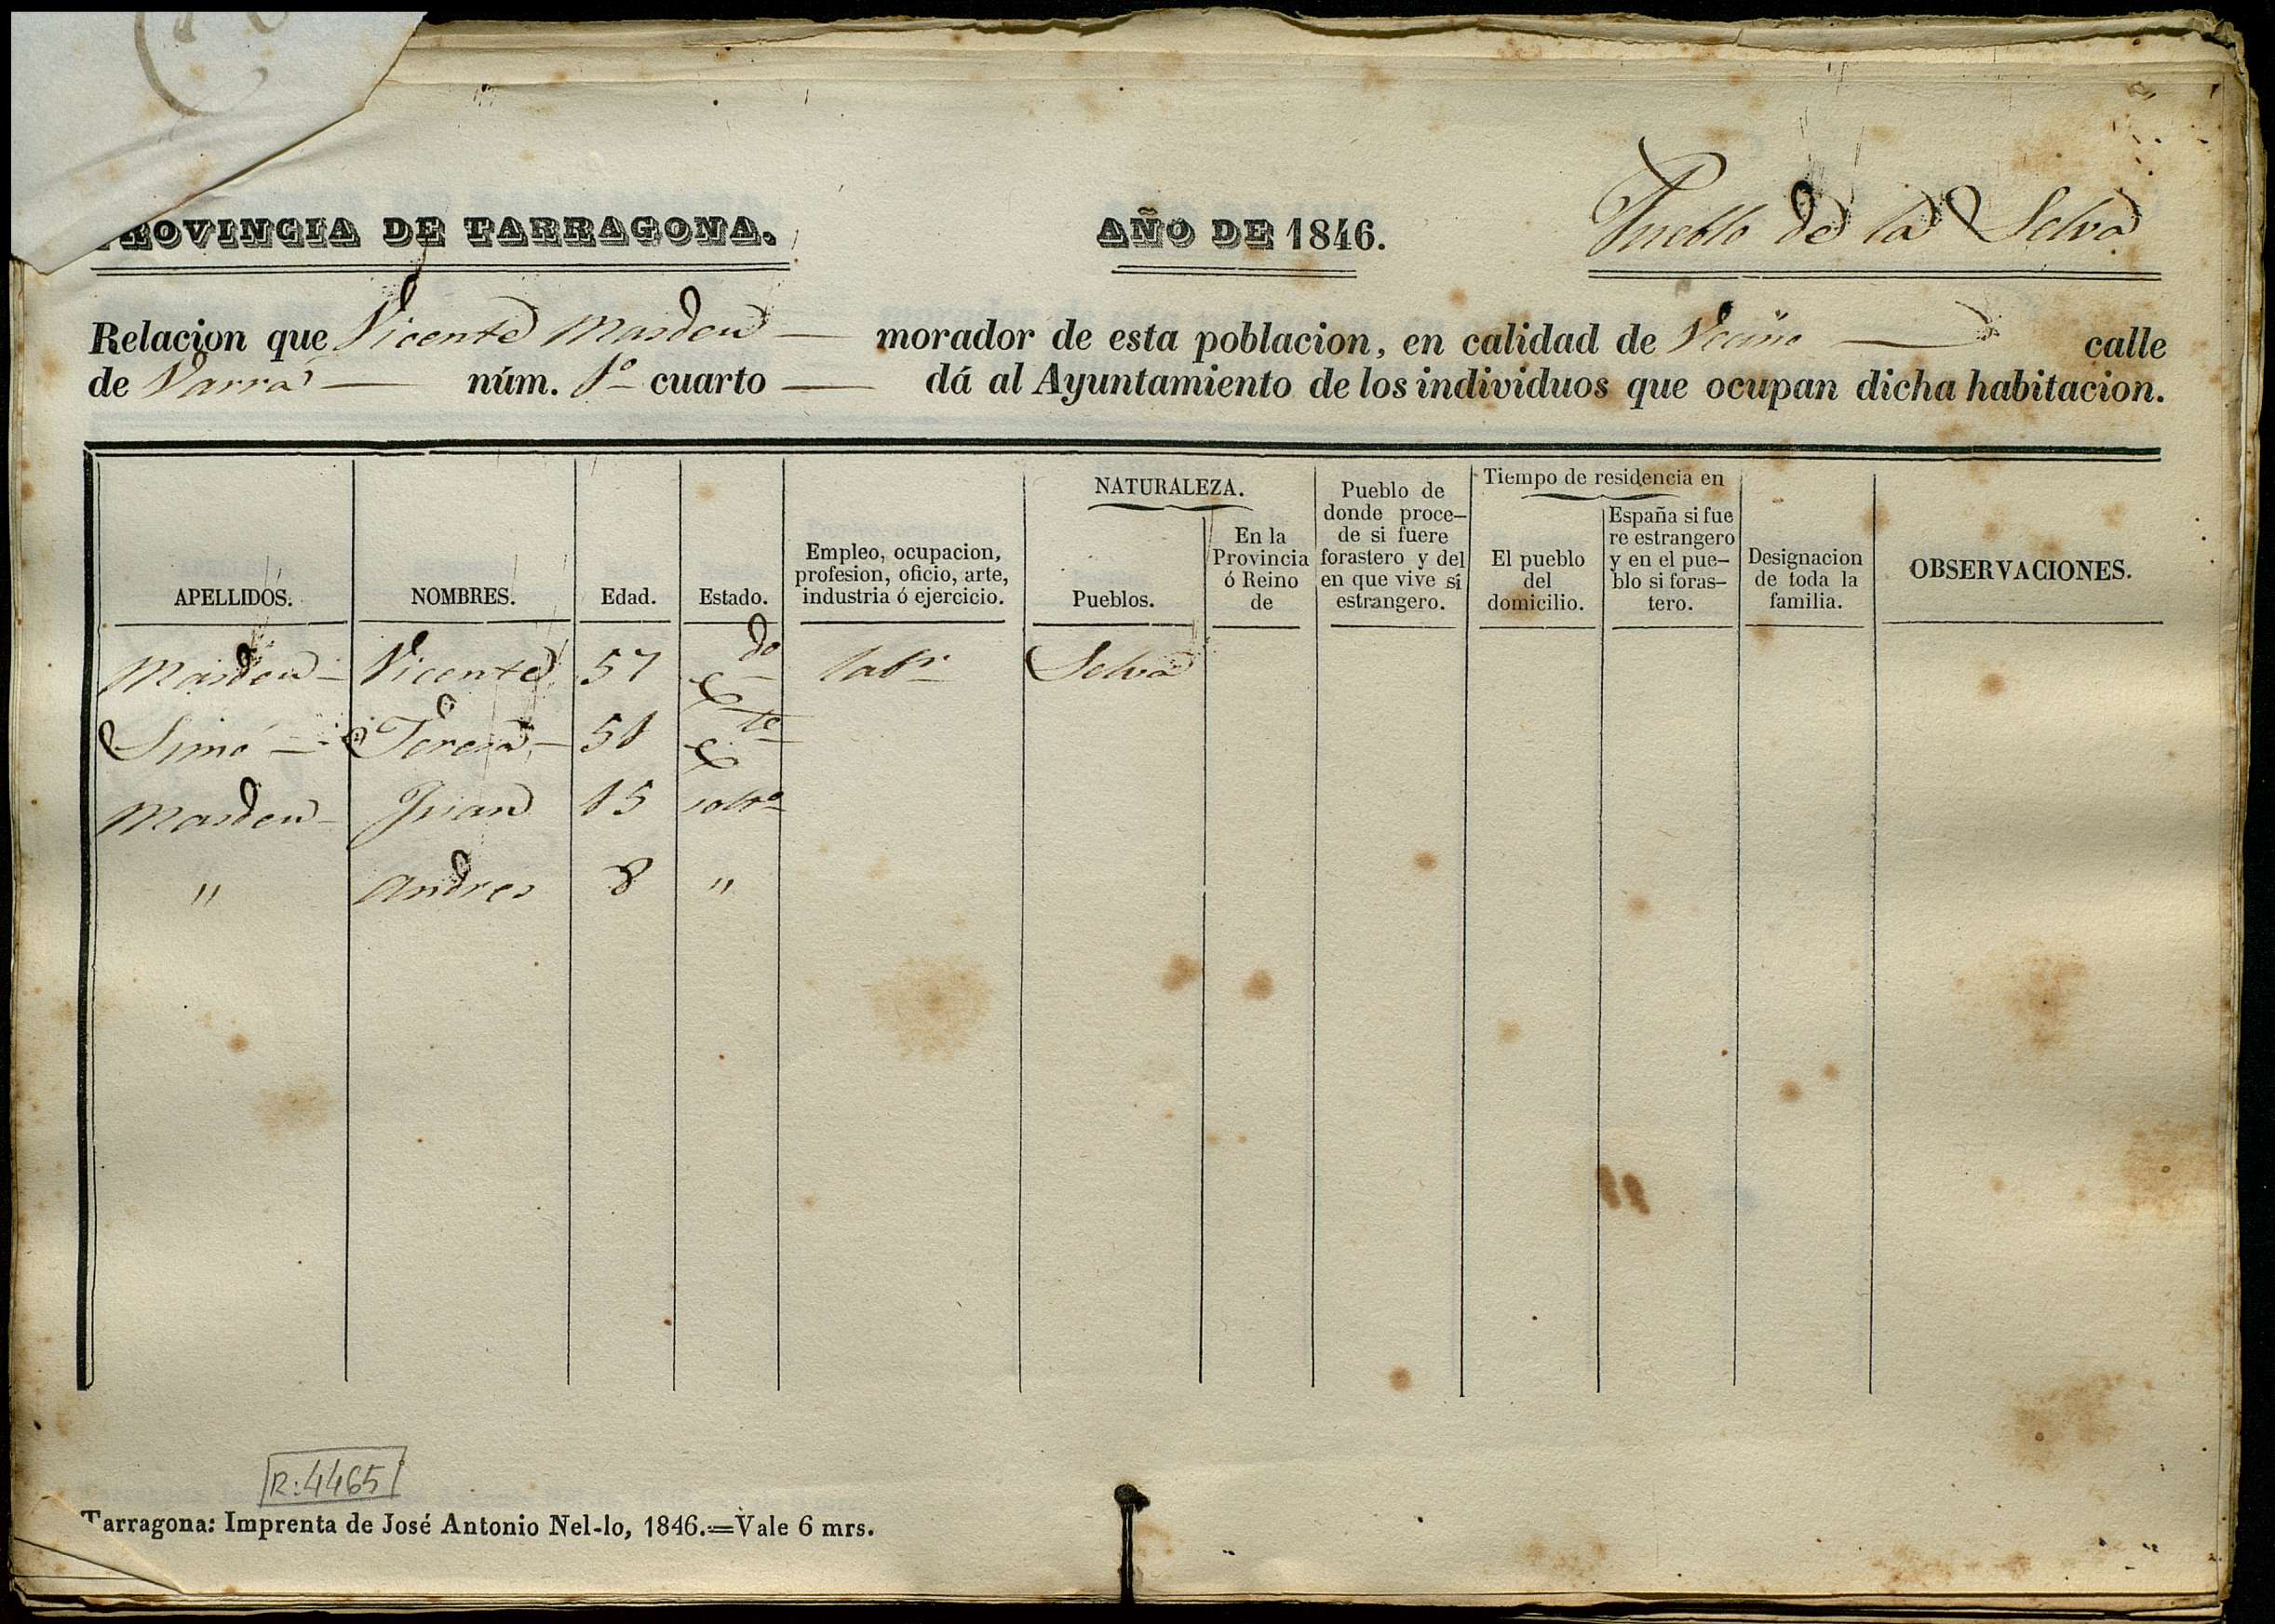 PROVINCIA DE TARRAGONA.
AÑO DE 1846.
Pueblo de la Selva
Relacion que Vicente Masdeu — morador de esta poblacion, en calidad de Vecino — calle
de Varra — núm. 1º cuarto — dá al Ayuntamiento de los individuos que ocupan dicha habitacion.
APELLIDOS.
NOMBRES.
Edad.
Estado.
Empleo, ocupacion,
profesion, oficio, arte,
industria ó ejercicio.
NATURALEZA.
Pueblos.
En la
Provincia
ó Reino
de
Pueblo de
donde proce-
de si fuere
forastero y del
en que vive si
estrangero.
Tiempo de residencia en
El pueblo
del
domicilio.
España si fue
re estrangero
y en el pue-
blo si foras-
tero.
Designacion
de toda la
familia.
OBSERVACIONES.
Masdeu Vicente 57 cdo labr Selva
Simó Teresa 51 cte
Masdeu Juan 15 soltº
" Andres 8 "
R:4465
Tarragona: Imprenta de José Antonio Nel-lo, 1846.=Vale 6 mrs.